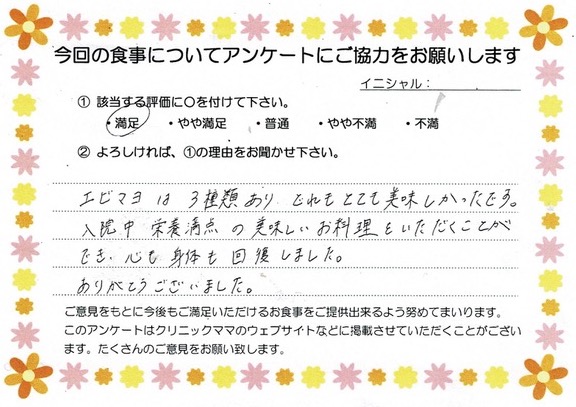 今回の食事についてアンケートにご協力をお願いします
イニシャル：
① 該当する評価に○を付けて下さい。
・満足 ・やや満足 ・普通 ・やや不満 ・不満
② よろしければ、①の理由をお聞かせ下さい。
エビマヨは3種類あり どれもとても美味しかったです。
入院中 栄養満点の美味しいお料理をいただくことが
でき、心も身体も回復しました。
ありがとうございました。
ご意見をもとに今後もご満足いただけるお食事をご提供出来るよう努めてまいります。
このアンケートはクリニックママのウェブサイトなどに掲載させていただくことがござい
ます。たくさんのご意見をお願い致します。